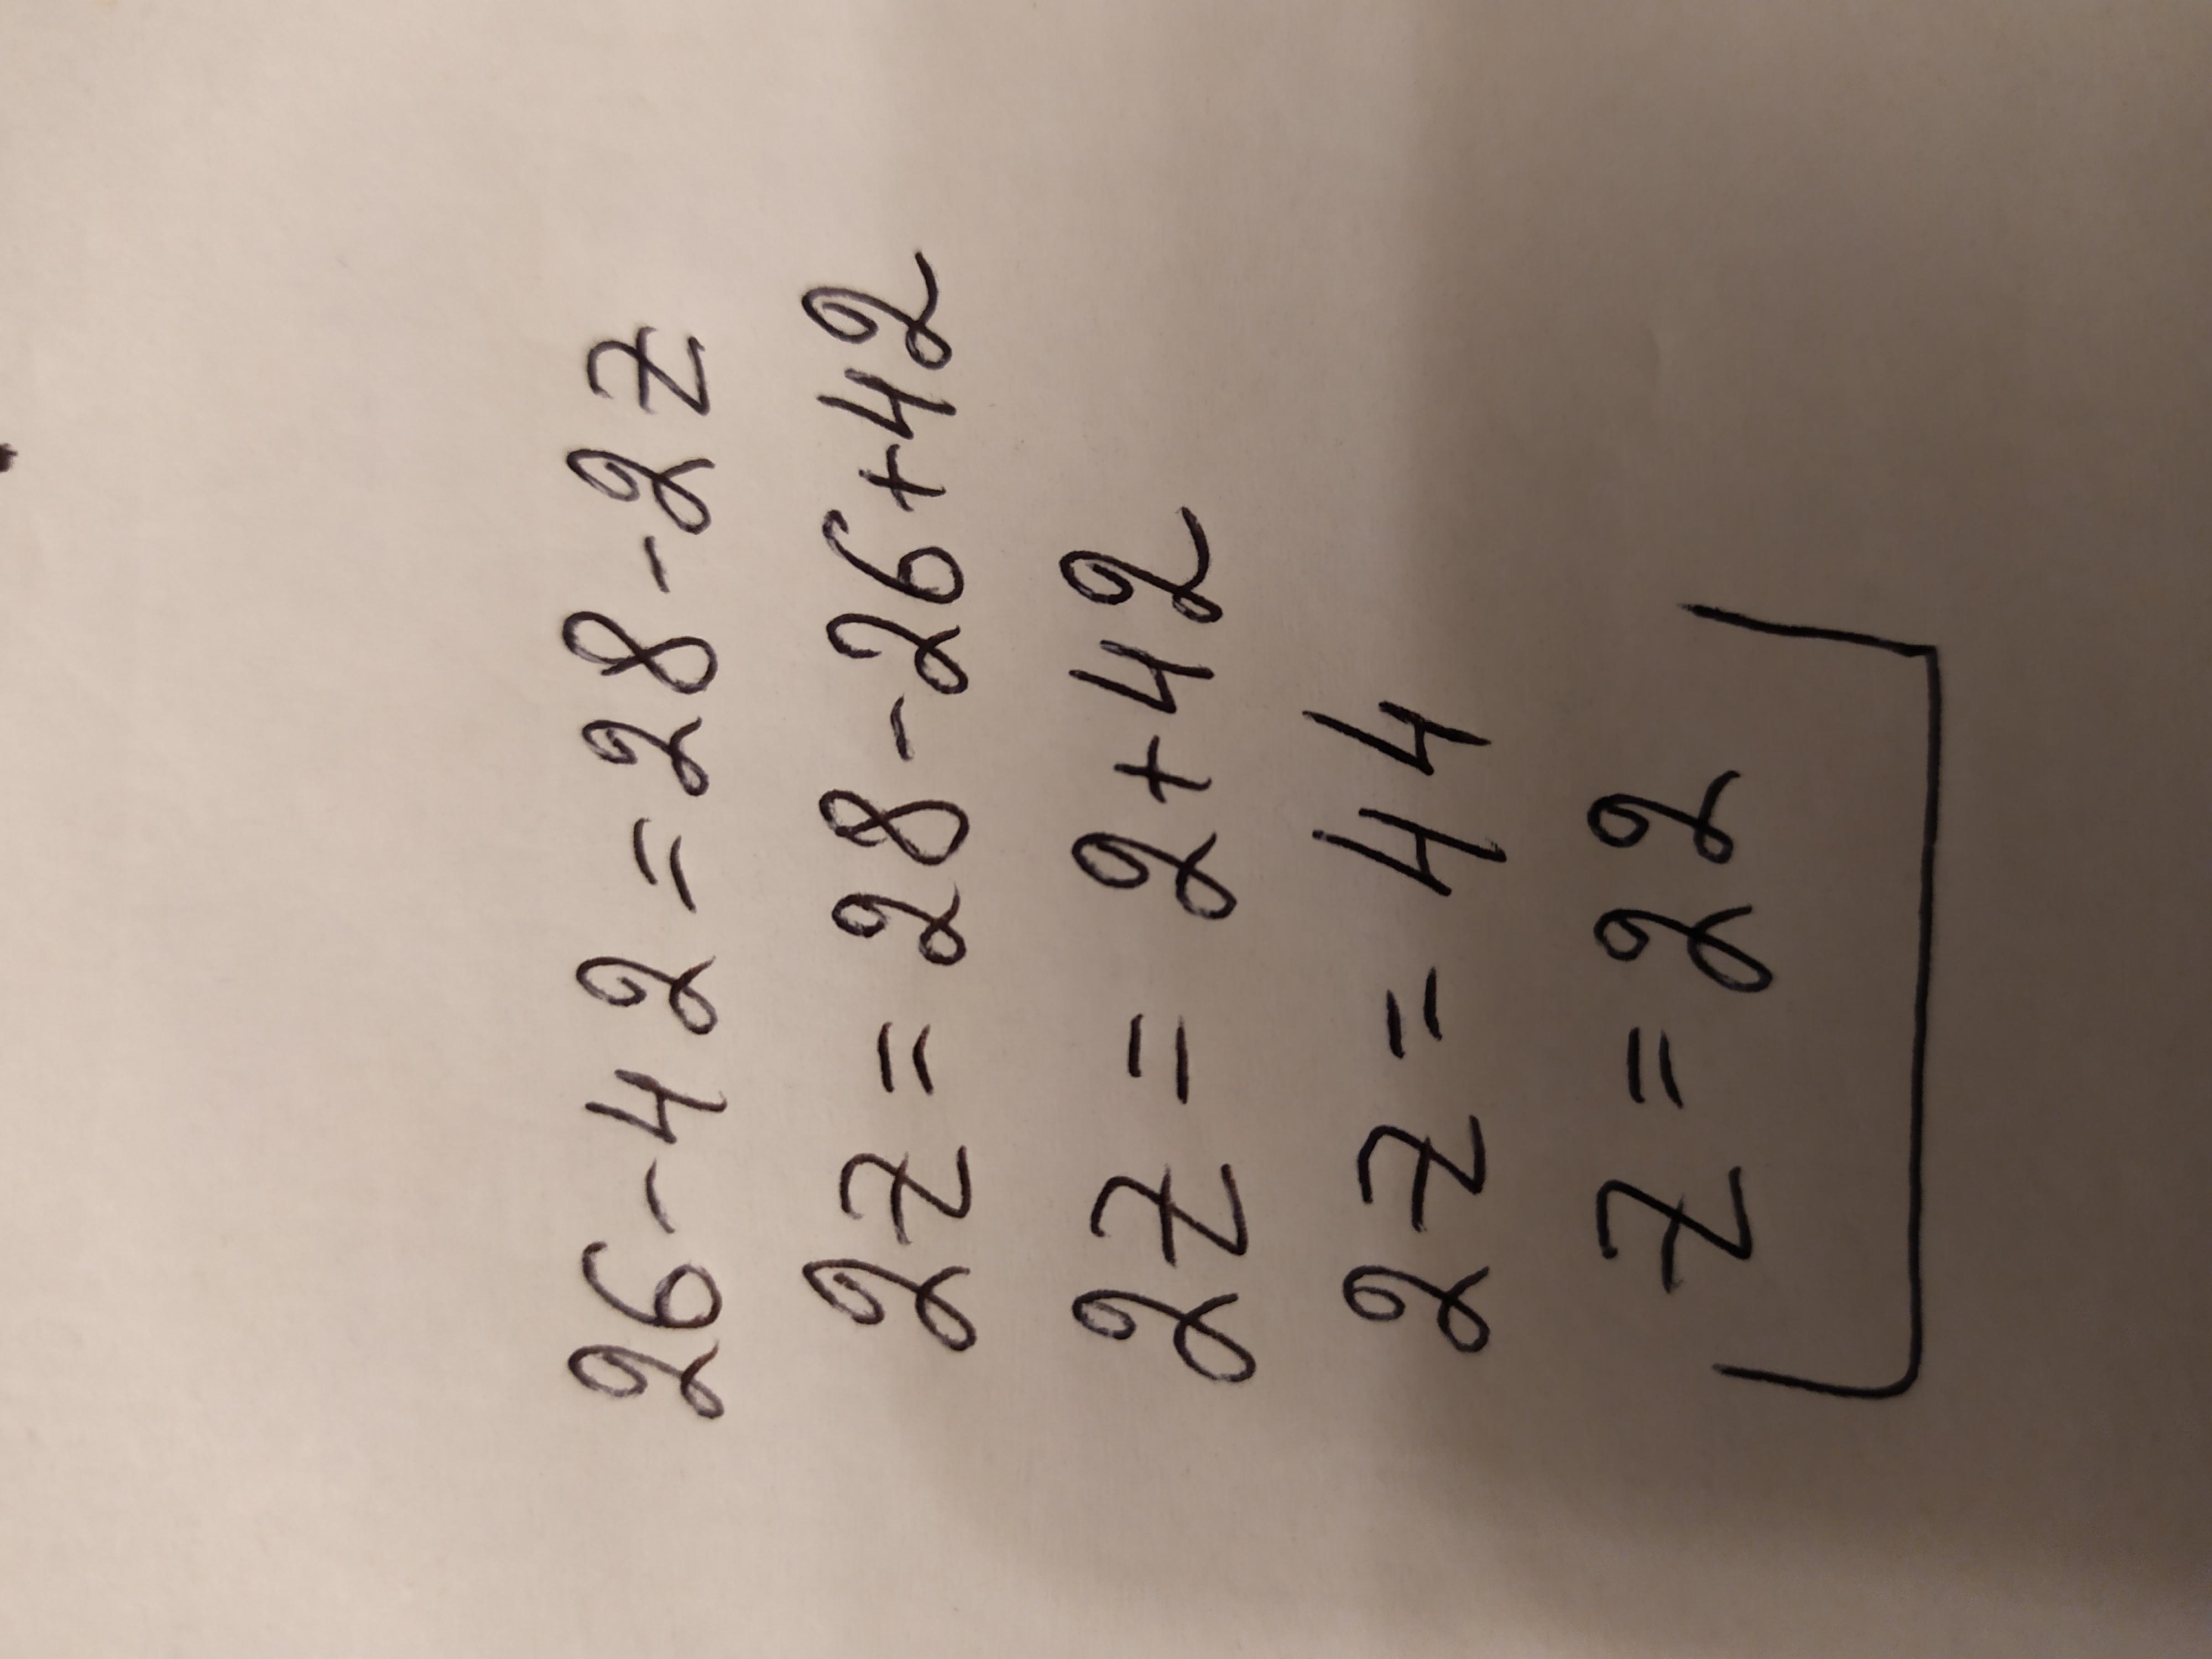 26-42=28-2z
2z=28-26+42
2z=2+42
2z=44
z=22